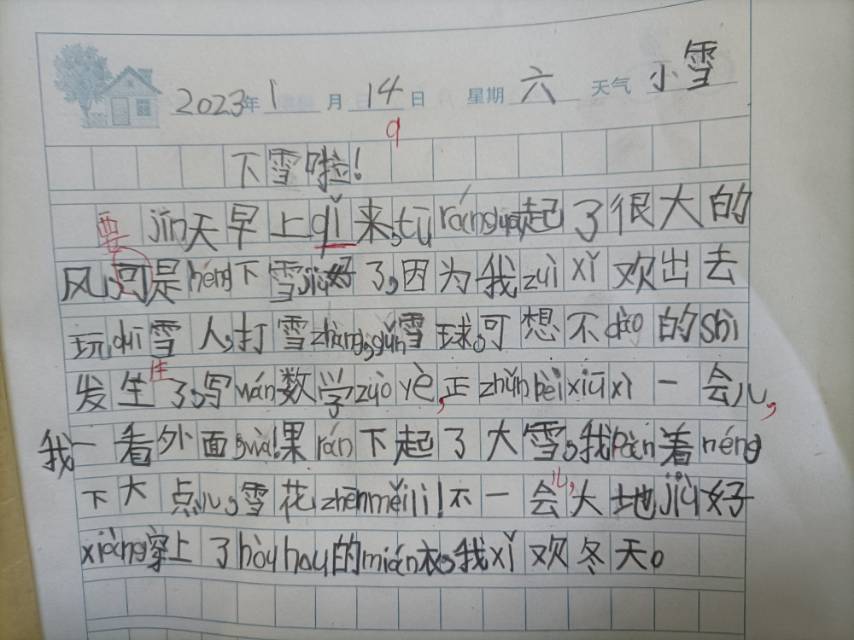 2023年1月14日 星期六 天气小雪
q
下雪啦!
要 jīn天早上qǐ来,tū ránguā起了很大的
风,可是néng下雪jiù好了,因为我zuì xǐ欢出去
玩,duī雪人,打雪zhàng,gǔn雪球,可想不dào的shì
发生了,写wán数学zuò yè,正zhǔn bèi xiū xi一会儿,
我一看外面,wà!果rán下起了大雪,我pàn着néng
下大点儿,雪花zhēnměilì!不一会儿,大地jiù好
xiàng穿上了hòu hou的mián衣,我xǐ欢冬天。